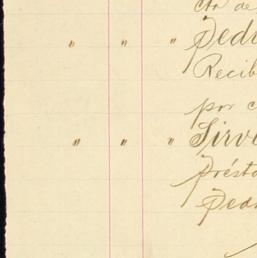 cta de
" " " Pedr
Recib
por c
" " " Sirve
présta
Ped